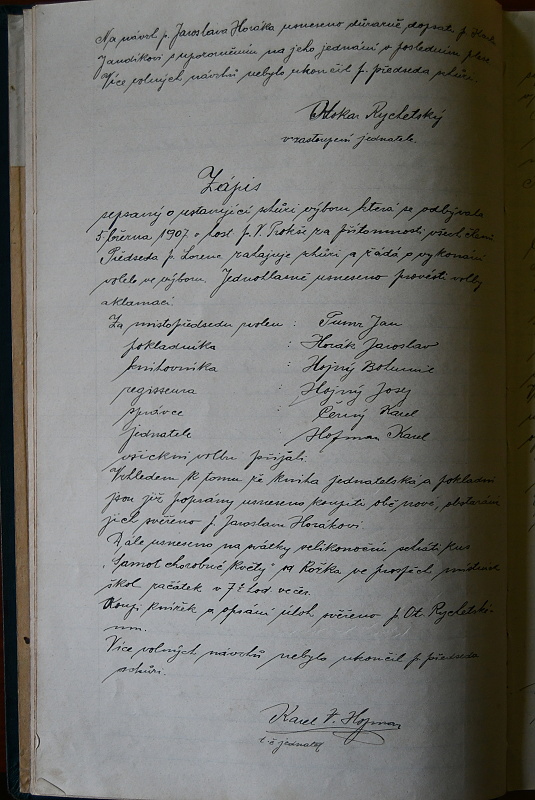 Na návrh p. Jaroslava Horáka usneseno důrazně dopsati p.
Jandíkovi s upozorněním na jeho jednání v posledním
Více volných návrhů nebylo ukončil p. předseda schůzi.
Otokar Rychetský
v zastoupení jednatele.
Zápis
sepsaný o ustavující schůzi výboru která se odbývala
5 března 1907 v host. p. V. za přítomnosti všech členů
Předseda p. Lorenc zahajuje schůzi a žádá o vykonání
voleb ve výboru. Jednohlasně usneseno provésti volby
aklamací.
Za místopředsedu volen : Tuma Jan
pokladníka : Horák Jaroslav
knihovníka : Hojný Bohumil
regisseura : Hojný Josef
správce : Černý Karel
jednatele : Hofman Karel
všickni volbu přijali.
Vzhledem k tomu že kniha jednatelská a pokladní
jsou již popsány usneseno koupiti obě nové, obstarání
jich svěřeno p. Jaroslavu Horákovi.
Dále usneseno na svátky velikonoční sehráti kus
"Samot chorobné květy" od Kožka ve prospěch místních
škol začátek v 7 hod. večer.
Koupi knížek a opsání úloh svěřeno p. Ot. Rychetské-
mu.
Více volných návrhů nebylo ukončil p. předseda
schůzi.
Karel V. Hofman
t. č. jednatel